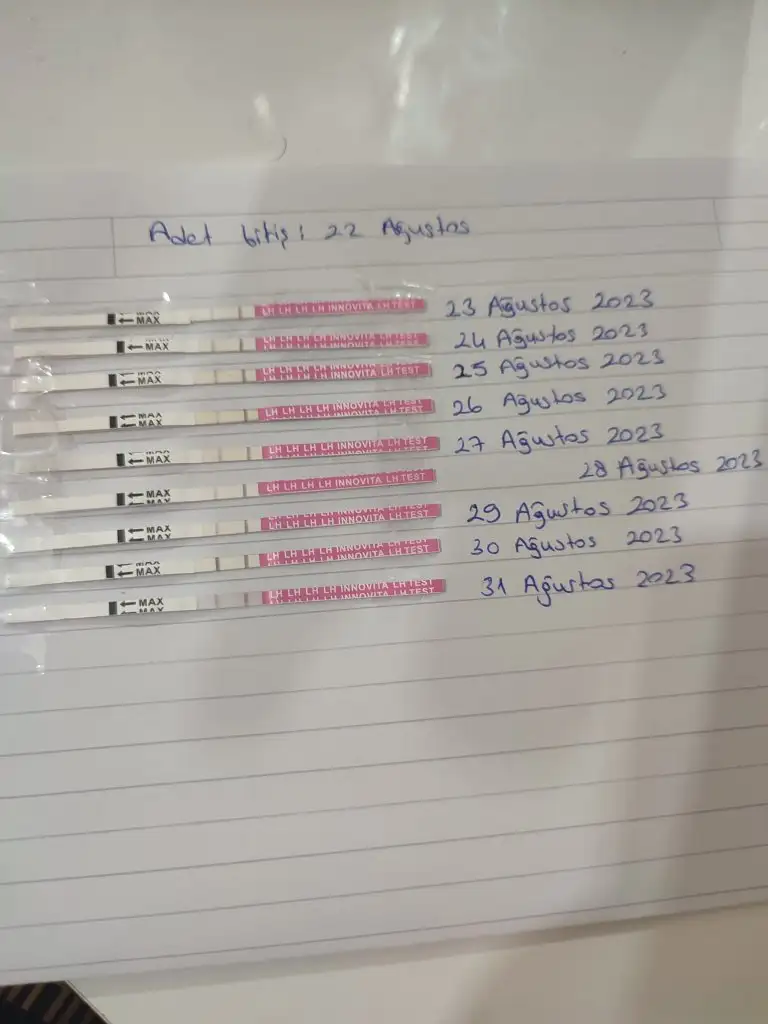 Adet bitiş: 22 Ağustos
MAX LH LH LH LH INNOVITA LH TEST 23 Ağustos 2023
MAX LH LH LH LH INNOVITA LH TEST 24 Ağustos 2023
MAX LH LH LH LH INNOVITA LH TEST 25 Ağustos 2023
MAX MAX LH LH LH LH INNOVITA LH TEST 26 Ağustos 2023
MAX LH LH LH LH INNOVITA LH TEST 27 Ağustos 2023
MAX LH LH LH LH INNOVITA LH TEST 28 Ağustos 2023
MAX LH LH LH LH INNOVITA LH TEST 29 Ağustos 2023
MAX LH LH LH LH INNOVITA LH TEST 30 Ağustos 2023
MAX LH LH LH LH INNOVITA LH TEST 31 Ağustos 2023